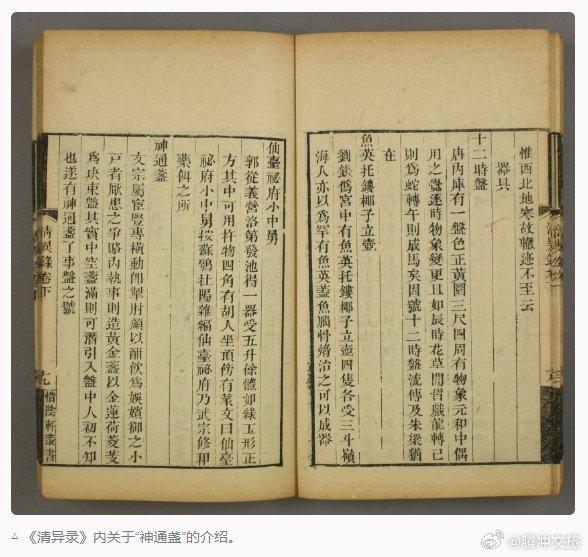 惟西北地寒故轍迹不至云
器具
十二時盤
唐内庫有一盤色正黃圍三尺四周有物象元和中偶
用之覺逐時物象變更且如辰時花草間皆戲龍轉巳
則爲蛇轉午則成馬矣因號十二時盤流傳及朱梁猶
在
魚英托鏤椰子立壺
劉鋹僞宮中有魚英托鏤椰子立壺四隻各受三斗嶺
海人亦以爲罕有魚英蓋魚腦骨熁治之可以成器
仙臺祕府小中舅
郭從義營洛第發池得一器受五升餘體如綠玉形正
方其中可用杵物四角有胡人坐頂傍有篆文曰仙臺
祕府小中舅按蘇鶚杜陽雜編仙臺祕府乃武宗修和
藥餌之所
神通盞
文宗屬宦豎專橫動卽掣肘頗以酣飲爲娛嬪御之小
戶者厭患之爭賂内執事則造黃金盞以金蓮荷菱芰
爲玦束盤其實中空盞滿則可潛引入盤中人初不知
也遂有神通盞了事盤之號
清異錄卷下
九
惜陰軒叢書
△ 《清异录》内关于“神通盏”的介绍。
@腾冲文旅